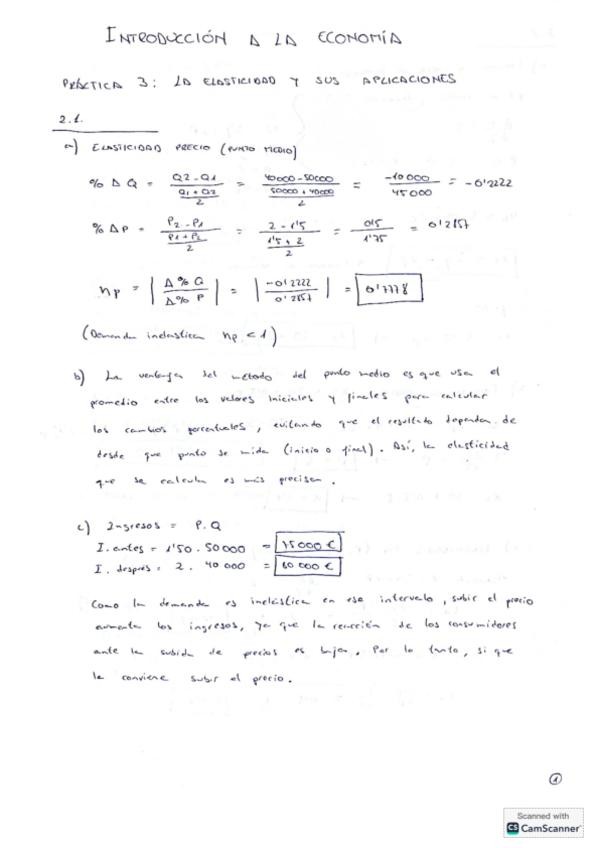 INTRODUCCIÓN A LA ECONOMÍA
PRÁCTICA 3: LA ELASTICIDAD Y SUS APLICACIONES
2.1.
a) ELASTICIDAD PRECIO (PUNTO MEDIO)
% Δ Q = (Q2 - Q1) / ((Q1 + Q2) / 2) = (40000 - 50000) / ((50000 + 40000) / 2) = -10 000 / 45 000 = -0'2222
% ΔP = (P2 - P1) / ((P1 + P2) / 2) = (2 - 1'5) / ((1'5 + 2) / 2) = 0'5 / 1'75 = 0'2857
np = | Δ% Q / Δ% P | = | -0'2222 / 0'2857 | = 0'7778
(Demanda inelástica np < 1)
b) La ventaja del método del punto medio es que usa el
promedio entre los valores iniciales y finales para calcular
los cambios porcentuales, evitando que el resultado dependa de
desde que punto se mida (inicio o final). Así, la elasticidad
que se calcula es más precisa.
c) Ingresos = P.Q
I. antes = 1'50 . 50 000 = 75 000 €
I. después = 2 . 40 000 = 80 000 €
Como la demanda es inelástica en ese intervalo, subir el precio
aumenta los ingresos, ya que la reacción de los consumidores
ante la subida de precios es baja. Por lo tanto, si que
le conviene subir el precio.
1
Scanned with
CS CamScanner